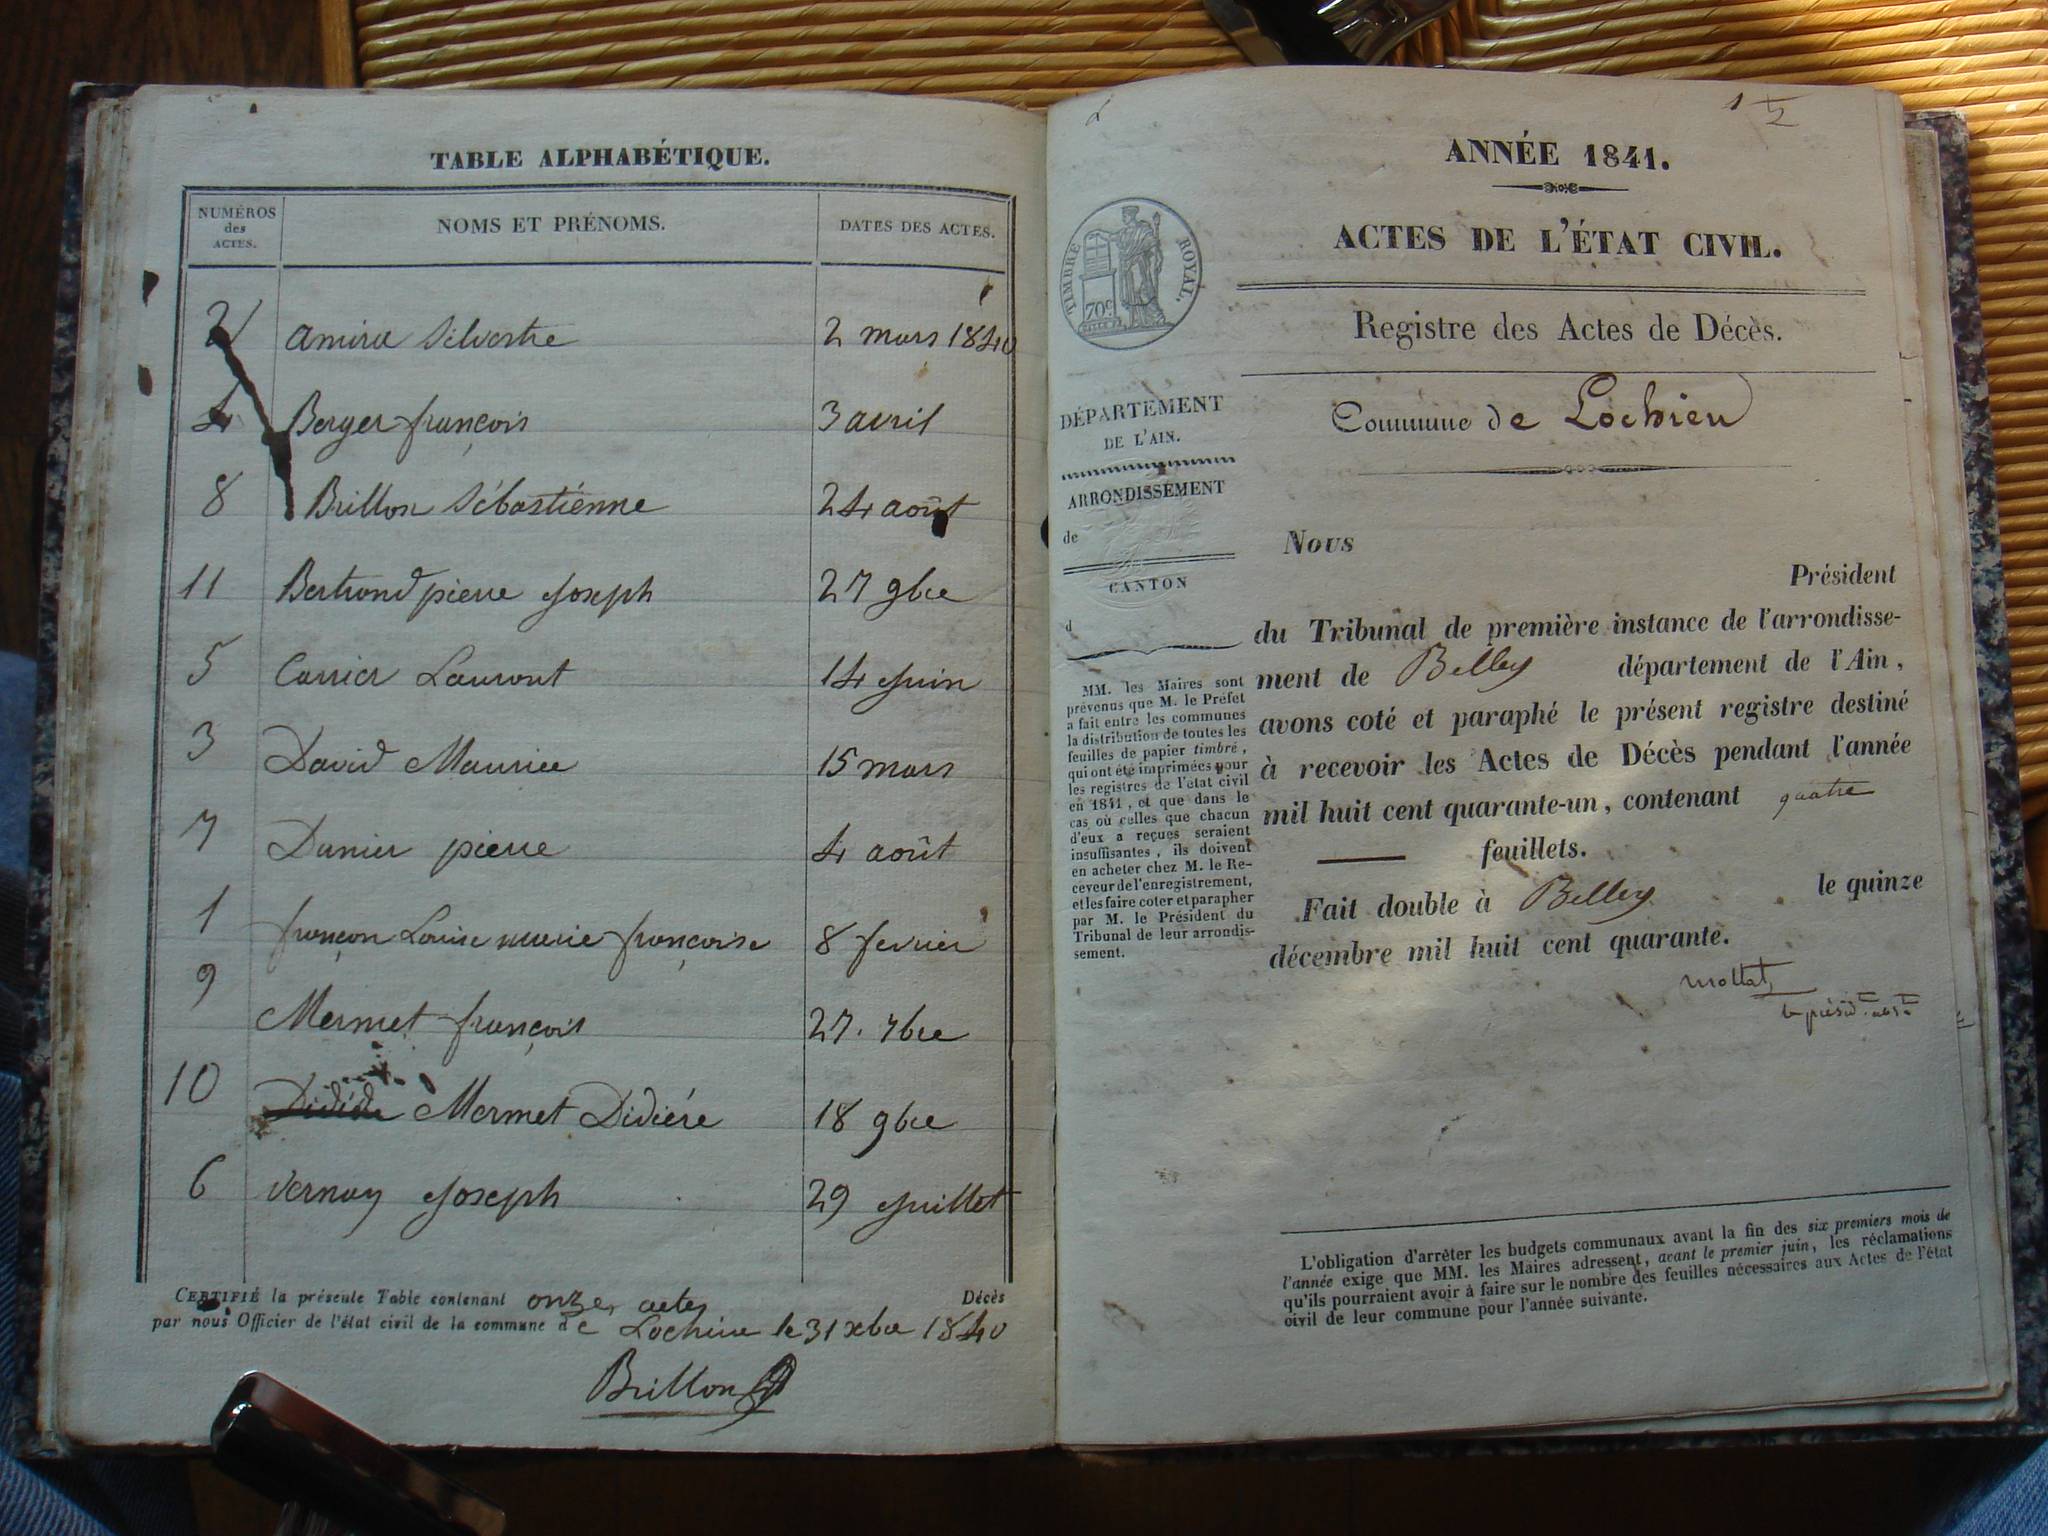 TABLE ALPHABÉTIQUE.
NUMÉROS des ACTES. NOMS ET PRÉNOMS. DATES DES ACTES.
2 amira Silvestre 2 mars 1840
4 Berger françois 3 avril
8 Brillon Sébastiénne 24 août
11 Bertrand pierre Joseph 27 9bre
5 Carrier Laurent 14 Juin
3 David Maurice 15 mars
7 Danier pierre 4 août
1 françon Louise marie françoise 8 fevrier
9 Mermet françois 27. 7bre
10 Mermet Didiére 18 9bre
6 vernay Joseph 29 Juillet
CERTIFIÉ la présente Table contenant onze actes Décès
par nous Officier de l'état civil de la commune de Lochieu le 31 xbre 1840
Brillon
1
ANNÉE 1841.
ACTES DE L'ÉTAT CIVIL.
TIMBRE ROYAL.
70c
Registre des Actes de Décès.
Commune de Lochieu
DÉPARTEMENT
DE L'AIN.
ARRONDISSEMENT
de
CANTON
d
MM. les Maires sont
prévenus que M. le Préfet
a fait entre les communes
la distribution de toutes les
feuilles de papier timbré,
qui ont été imprimées pour
les registres de l'état civil
en 1841, et que dans le
cas où celles que chacun
d'eux a reçues seraient
insuffisantes, ils doivent
en acheter chez M. le Re-
ceveur de l'enregistrement,
et les faire coter et parapher
par M. le Président du
Tribunal de leur arrondis-
sement.
Nous
Président
du Tribunal de première instance de l'arrondisse-
ment de Belley département de l'Ain,
avons coté et paraphé le présent registre destiné
à recevoir les Actes de Décès pendant l'année
mil huit cent quarante-un, contenant quatre
feuillets.
Fait double à Belley le quinze
décembre mil huit cent quarante.
mollat
L'obligation d'arrêter les budgets communaux avant la fin des six premiers mois de
l'année exige que MM. les Maires adressent, avant le premier juin, les réclamations
qu'ils pourraient avoir à faire sur le nombre des feuilles nécessaires aux Actes de l'état
civil de leur commune pour l'année suivante.